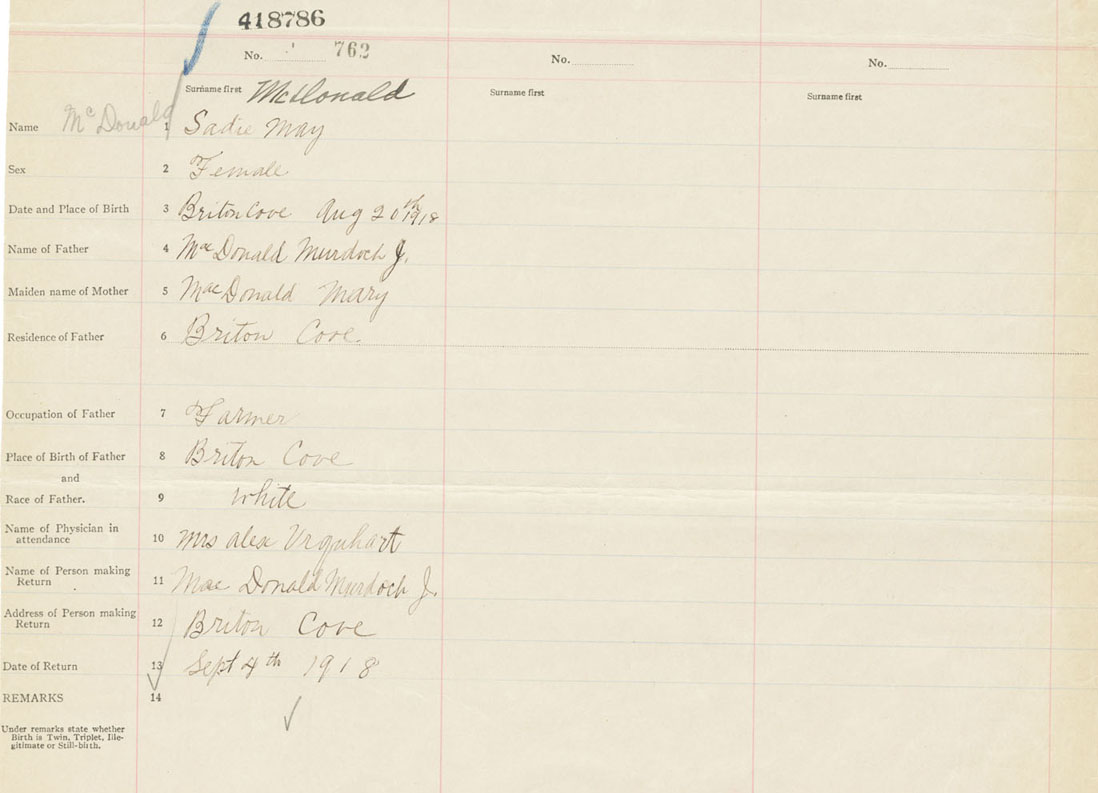 418786
No. 762 No. No.
Surname first McDonald Surname first Surname first
McDonald
Name 1 Sadie May
Sex 2 Female
Date and Place of Birth 3 Briton Cove Aug 20th 1918
Name of Father 4 MacDonald Murdoch J.
Maiden name of Mother 5 MacDonald Mary
Residence of Father 6 Briton Cove
Occupation of Father 7 Farmer
Place of Birth of Father 8 Briton Cove
and
Race of Father. 9 White
Name of Physician in
attendance 10 Mrs Alex Urquhart
Name of Person making
Return 11 Mac Donald Murdoch J.
Address of Person making
Return 12 Briton Cove
Date of Return 13 Sept 4th 1918
REMARKS 14
Under remarks state whether
Birth is Twin, Triplet, Ille-
gitimate or Still-birth.